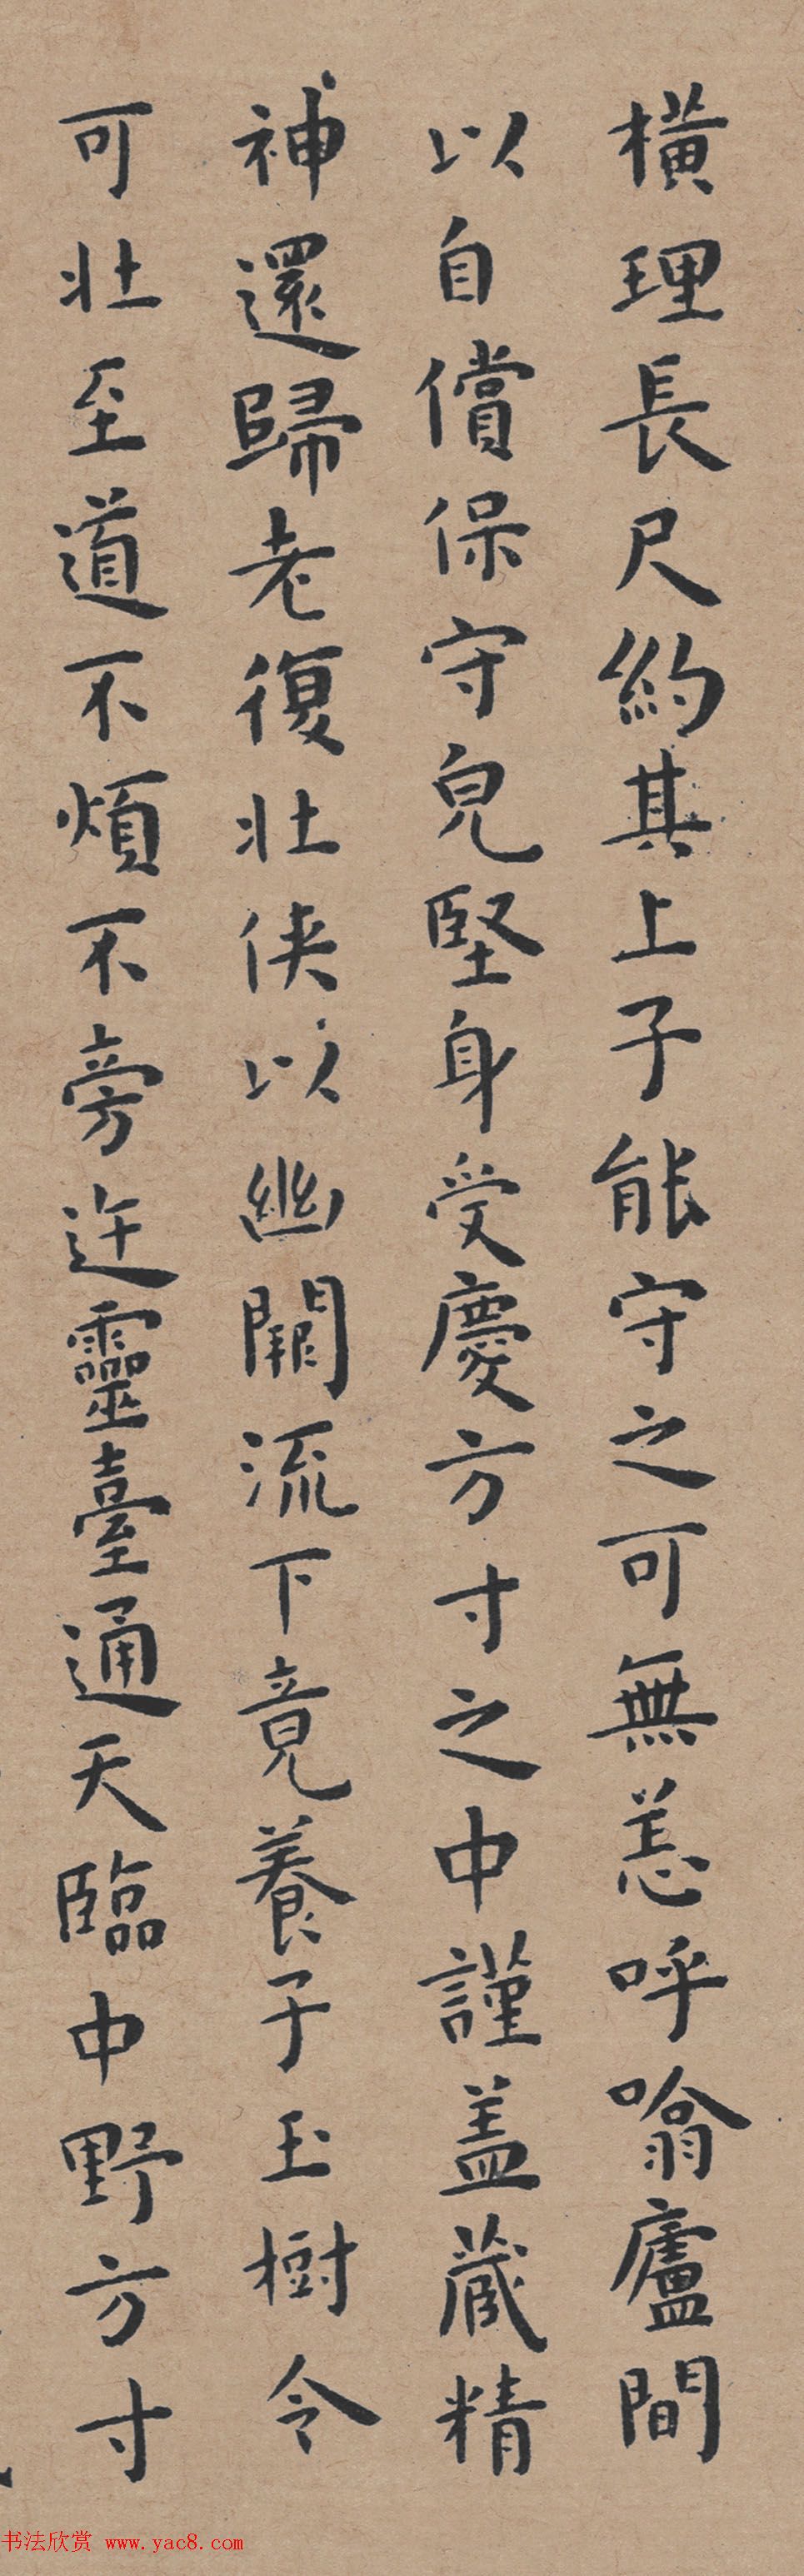 橫理長尺約其上子能守之可無恙呼噏廬間
以自償保守皃堅身受慶方寸之中謹盖藏精
神還歸老復壯俠以幽闕流下竟養子玉樹令
可壯至道不煩不旁迕靈臺通天臨中野方寸
书法欣赏 www.yac8.com